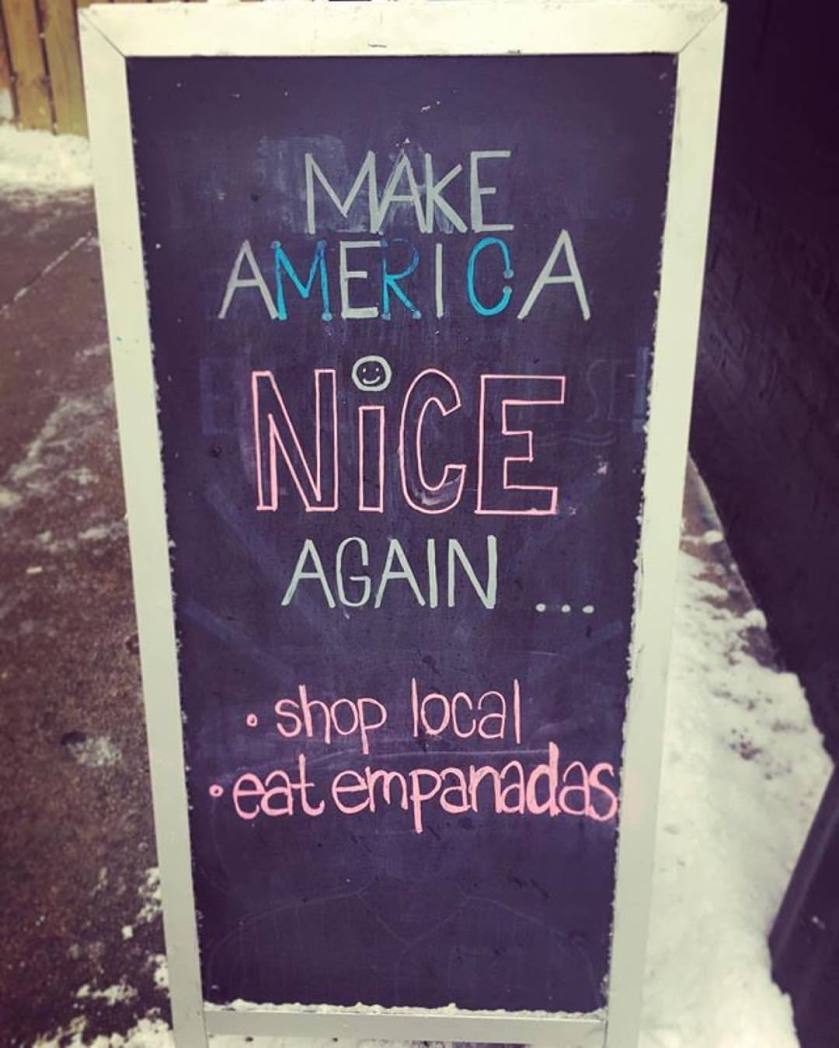 MAKE
AMERICA
NiCE
AGAIN ...
• shop local
• eat empanadas